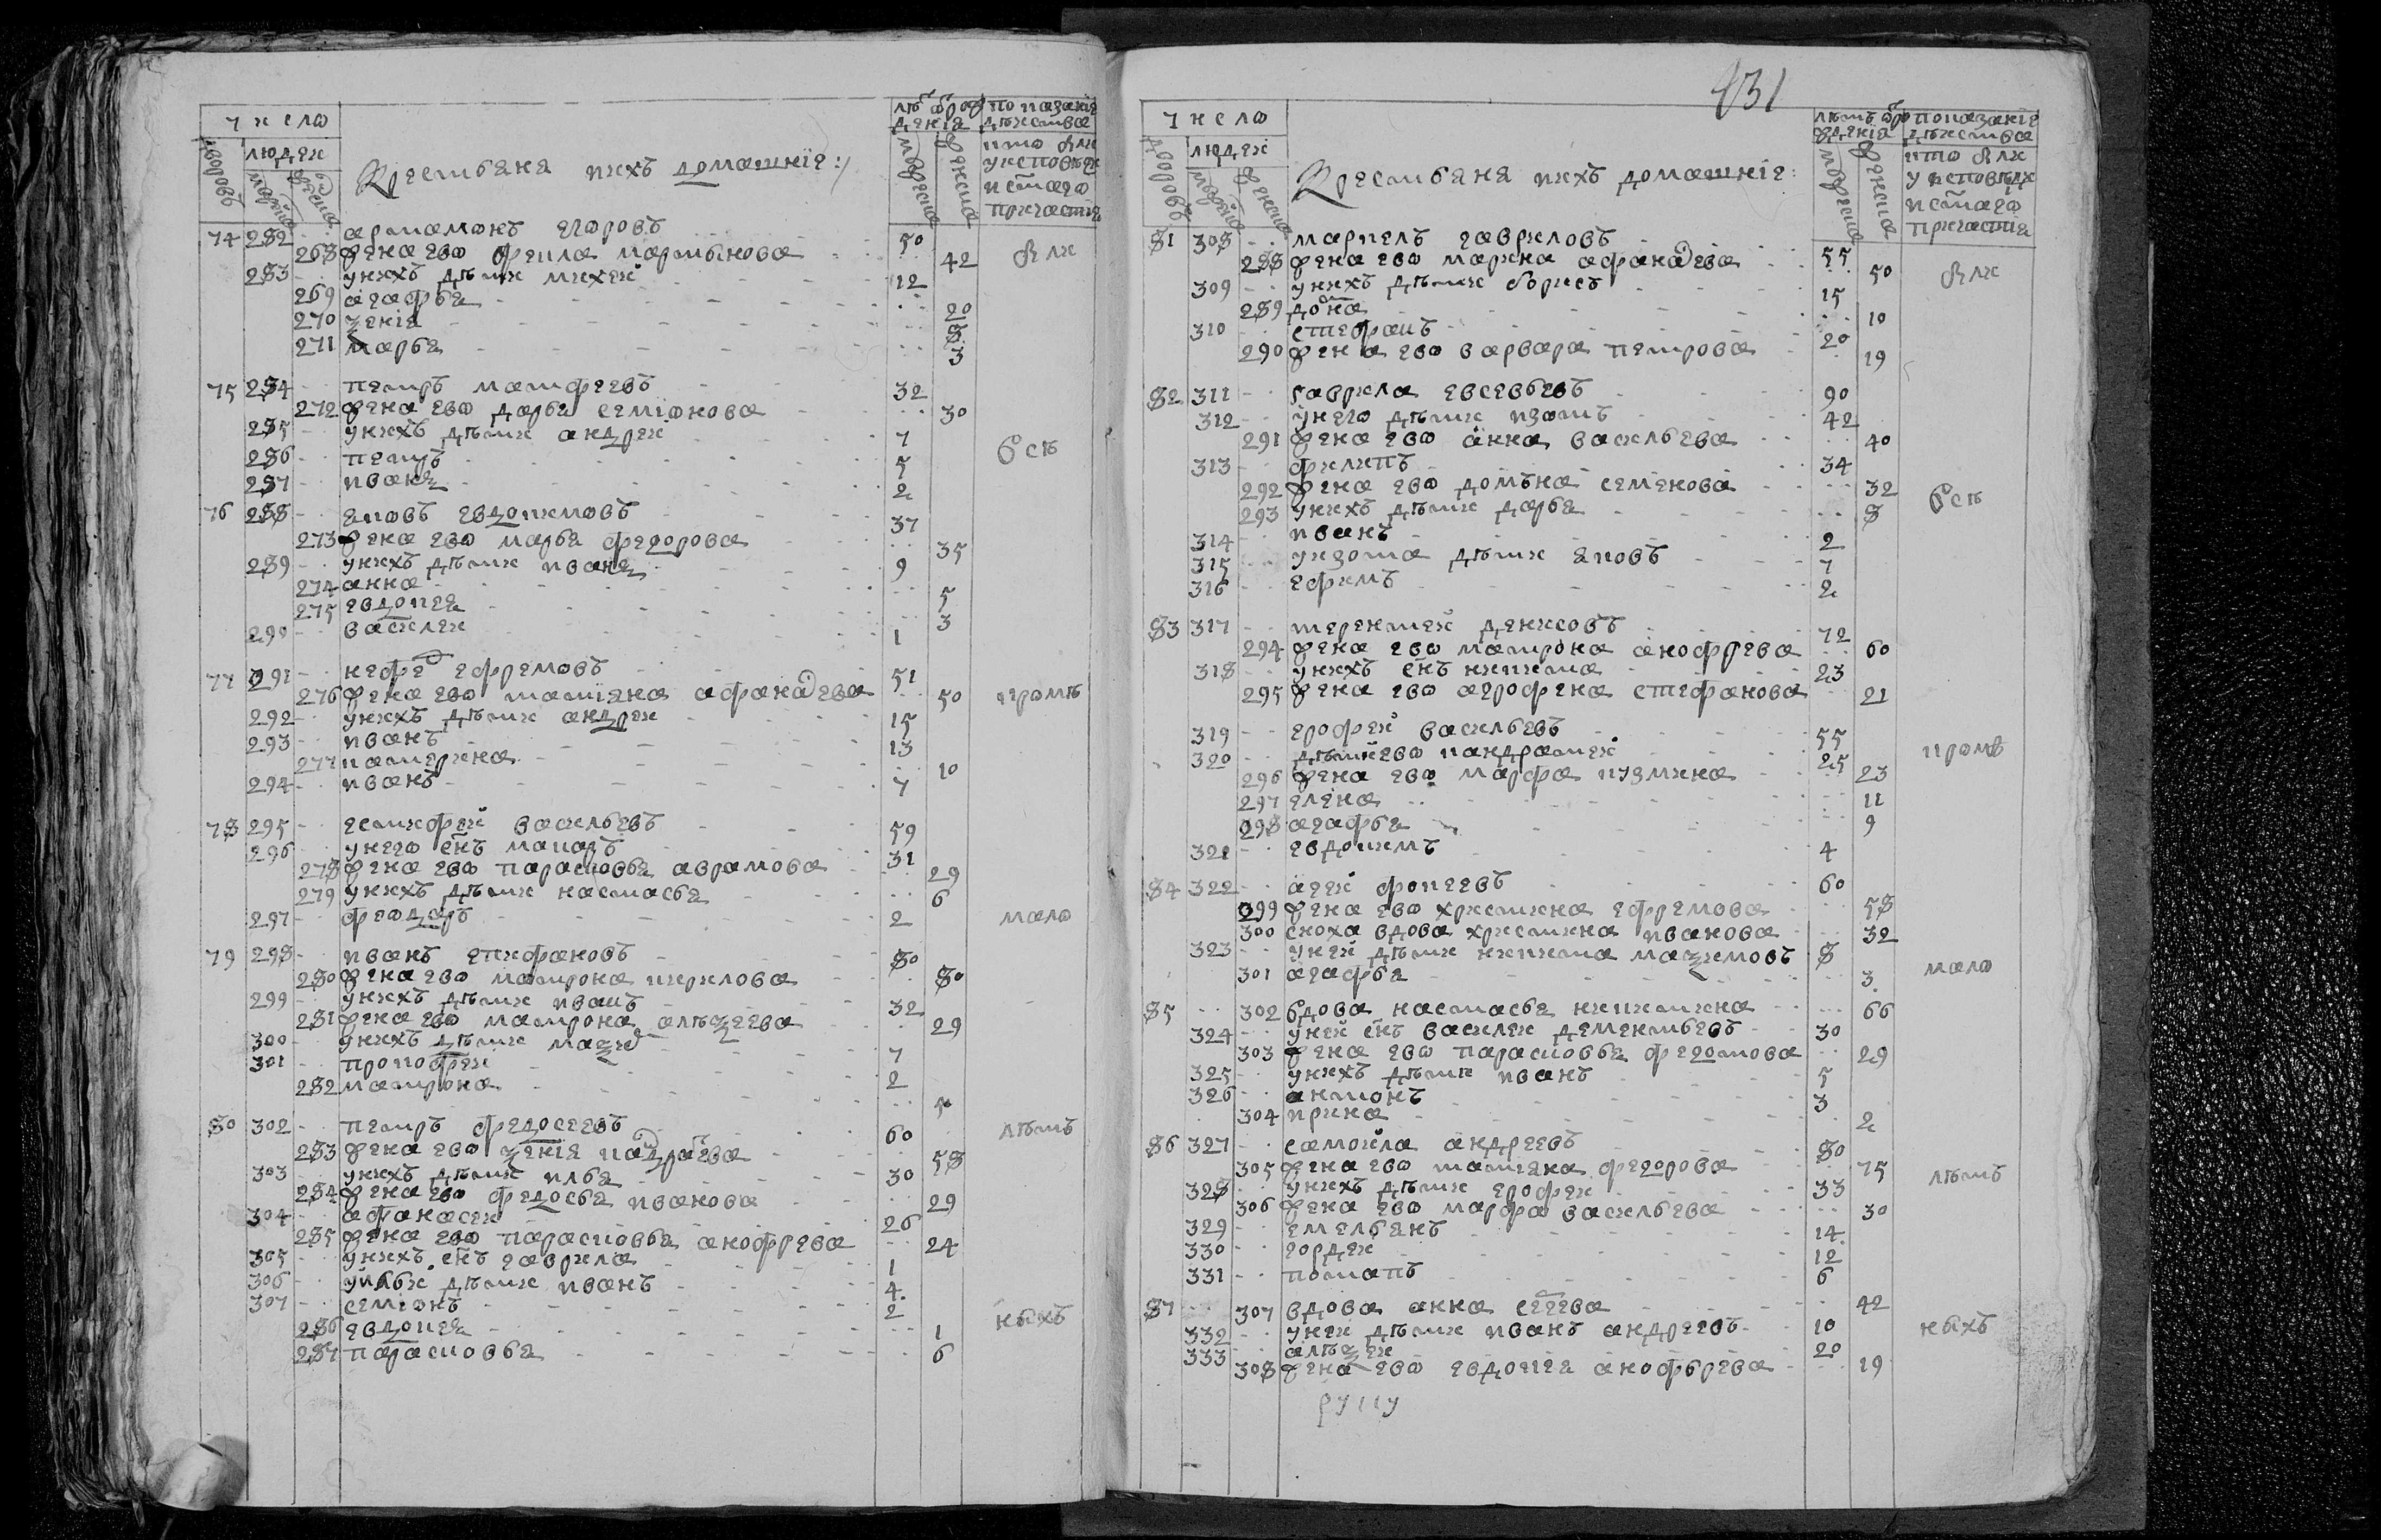 число
людеи
дворовъ
мужеска
женска
Крестьяна ихъ домашнїе:
лѣтъ ѿ рож
денїя
мужеска
женска
показанїе
дѣиства
кто был
у исповѣди
и с̃таго
причастїя
74 282 артамонъ егоровъ 50
268 жена ево фекла мартынова 42 были
283 у нихъ дѣти михеи 12
269 агафья 20
270 ѯенія 8
271 марья 3
75 284 петръ матфеевъ 32
272 жена ево дарья семіонова 30
285 у нихъ дѣти андреи 7
286 петръ 5 бсѣ
287 иванъ 2
76 288 яковъ евдокимовъ 37
273 жена ево марья федорова 35
289 у нихъ дѣти иванъ 9
274 анна 5
275 евдокея 3
290 василеи 1
77 291 нефед ефремовъ 51
276 жена ево татіана афанасева 50 кромѣ
292 у нихъ дѣти андреи 15
293 иванъ 13
277 катерина 10
294 иванъ 7
78 295 естифеи васильевъ 59
296 у него с̃нъ макаръ 31
278 жена ево парасковья аврамова 29
279 у нихъ дѣти настасья 6
297 феодоръ 2 мало
79 298 иванъ епифановъ 80
280 жена ево матрона кирилова 80
299 у нихъ дѣти иванъ 32
281 жена ево матрона алеѯеева 29
300 у нихъ дѣти маѯим 7
301 прокофеи 2
282 матрона 5
80 302 петръ федосеевъ 60 лѣтъ
283 жена ево ѯенія кондратева 58
303 у нихъ дѣти илья 30
284 жена ево федосья иванова 29
304 афанасеи 26
285 жена ево парасковья анофрева 24
305 у нихъ с̃нъ гаврила 1
306 у ильи дѣти иванъ 4
307 семіонъ 2
286 евдокея 1 ныхъ
287 парасковья 6
431
число
людеи
дворовъ
мужеска
женска
Крестьяна ихъ домашнїе:
лѣтъ ѿ ро
жденїя
мужеска
женска
показанїе
дѣиства
кто был
у исповѣди
и с̃таго
причастїя
81 308 маркелъ гавриловъ 55
288 жена ево марина афанасева 50 были
309 у нихъ дѣти борисъ 15
289 дона 10
310 стефанъ 20
290 жена ево варвара петрова 19
82 311 гаврила евсевьевъ 90
312 у него дѣти изотъ 42
291 жена ево анна васильева 40
313 филипъ 34
292 жена ево домъна семенова 32
293 у нихъ дѣти дарья 8 бсѣ
314 иванъ 2
315 у изота дѣти яковъ 7
316 ефимъ 2
83 317 терентеи денисовъ 72
294 жена ево матрона анофрева 60
318 у нихъ с̃нъ никита 23
295 жена ево агрофена стефанова 21
319 ерофеи васильевъ 55
320 дѣти ево кандратеи 25 кромѣ
296 жена ево марфа кузмина 23
297 елена 11
298 агафья 9
321 евдокимъ 4
84 322 агеи фокеевъ 60
299 жена ево христина ефремова 58
300 сноха вдова христина иванова 32
323 у неи дѣти никита маѯимовъ 8
301 агафья 3 мало
85 302 вдова настасья никитина 66
324 у неи с̃нъ василеи дементьевъ 30
303 жена ево парасковья федотова 29
325 у нихъ дѣти иванъ 5
326 антонъ 3
304 ирина 2
86 327 самоила андреевъ 80
305 жена ево татіяна федорова 75 лѣтъ
328 у нихъ дѣти ерофеи 33
306 жена ево марфа васильева 30
329 емельянъ 14
330 гордеи 12
331 потапъ 6
87 307 вдова анна сегеева 42
332 у неи дѣти иванъ андреевъ 10 ныхъ
333 алеѯеи 20
308 жена ево евдокея анофьрева 19
руку